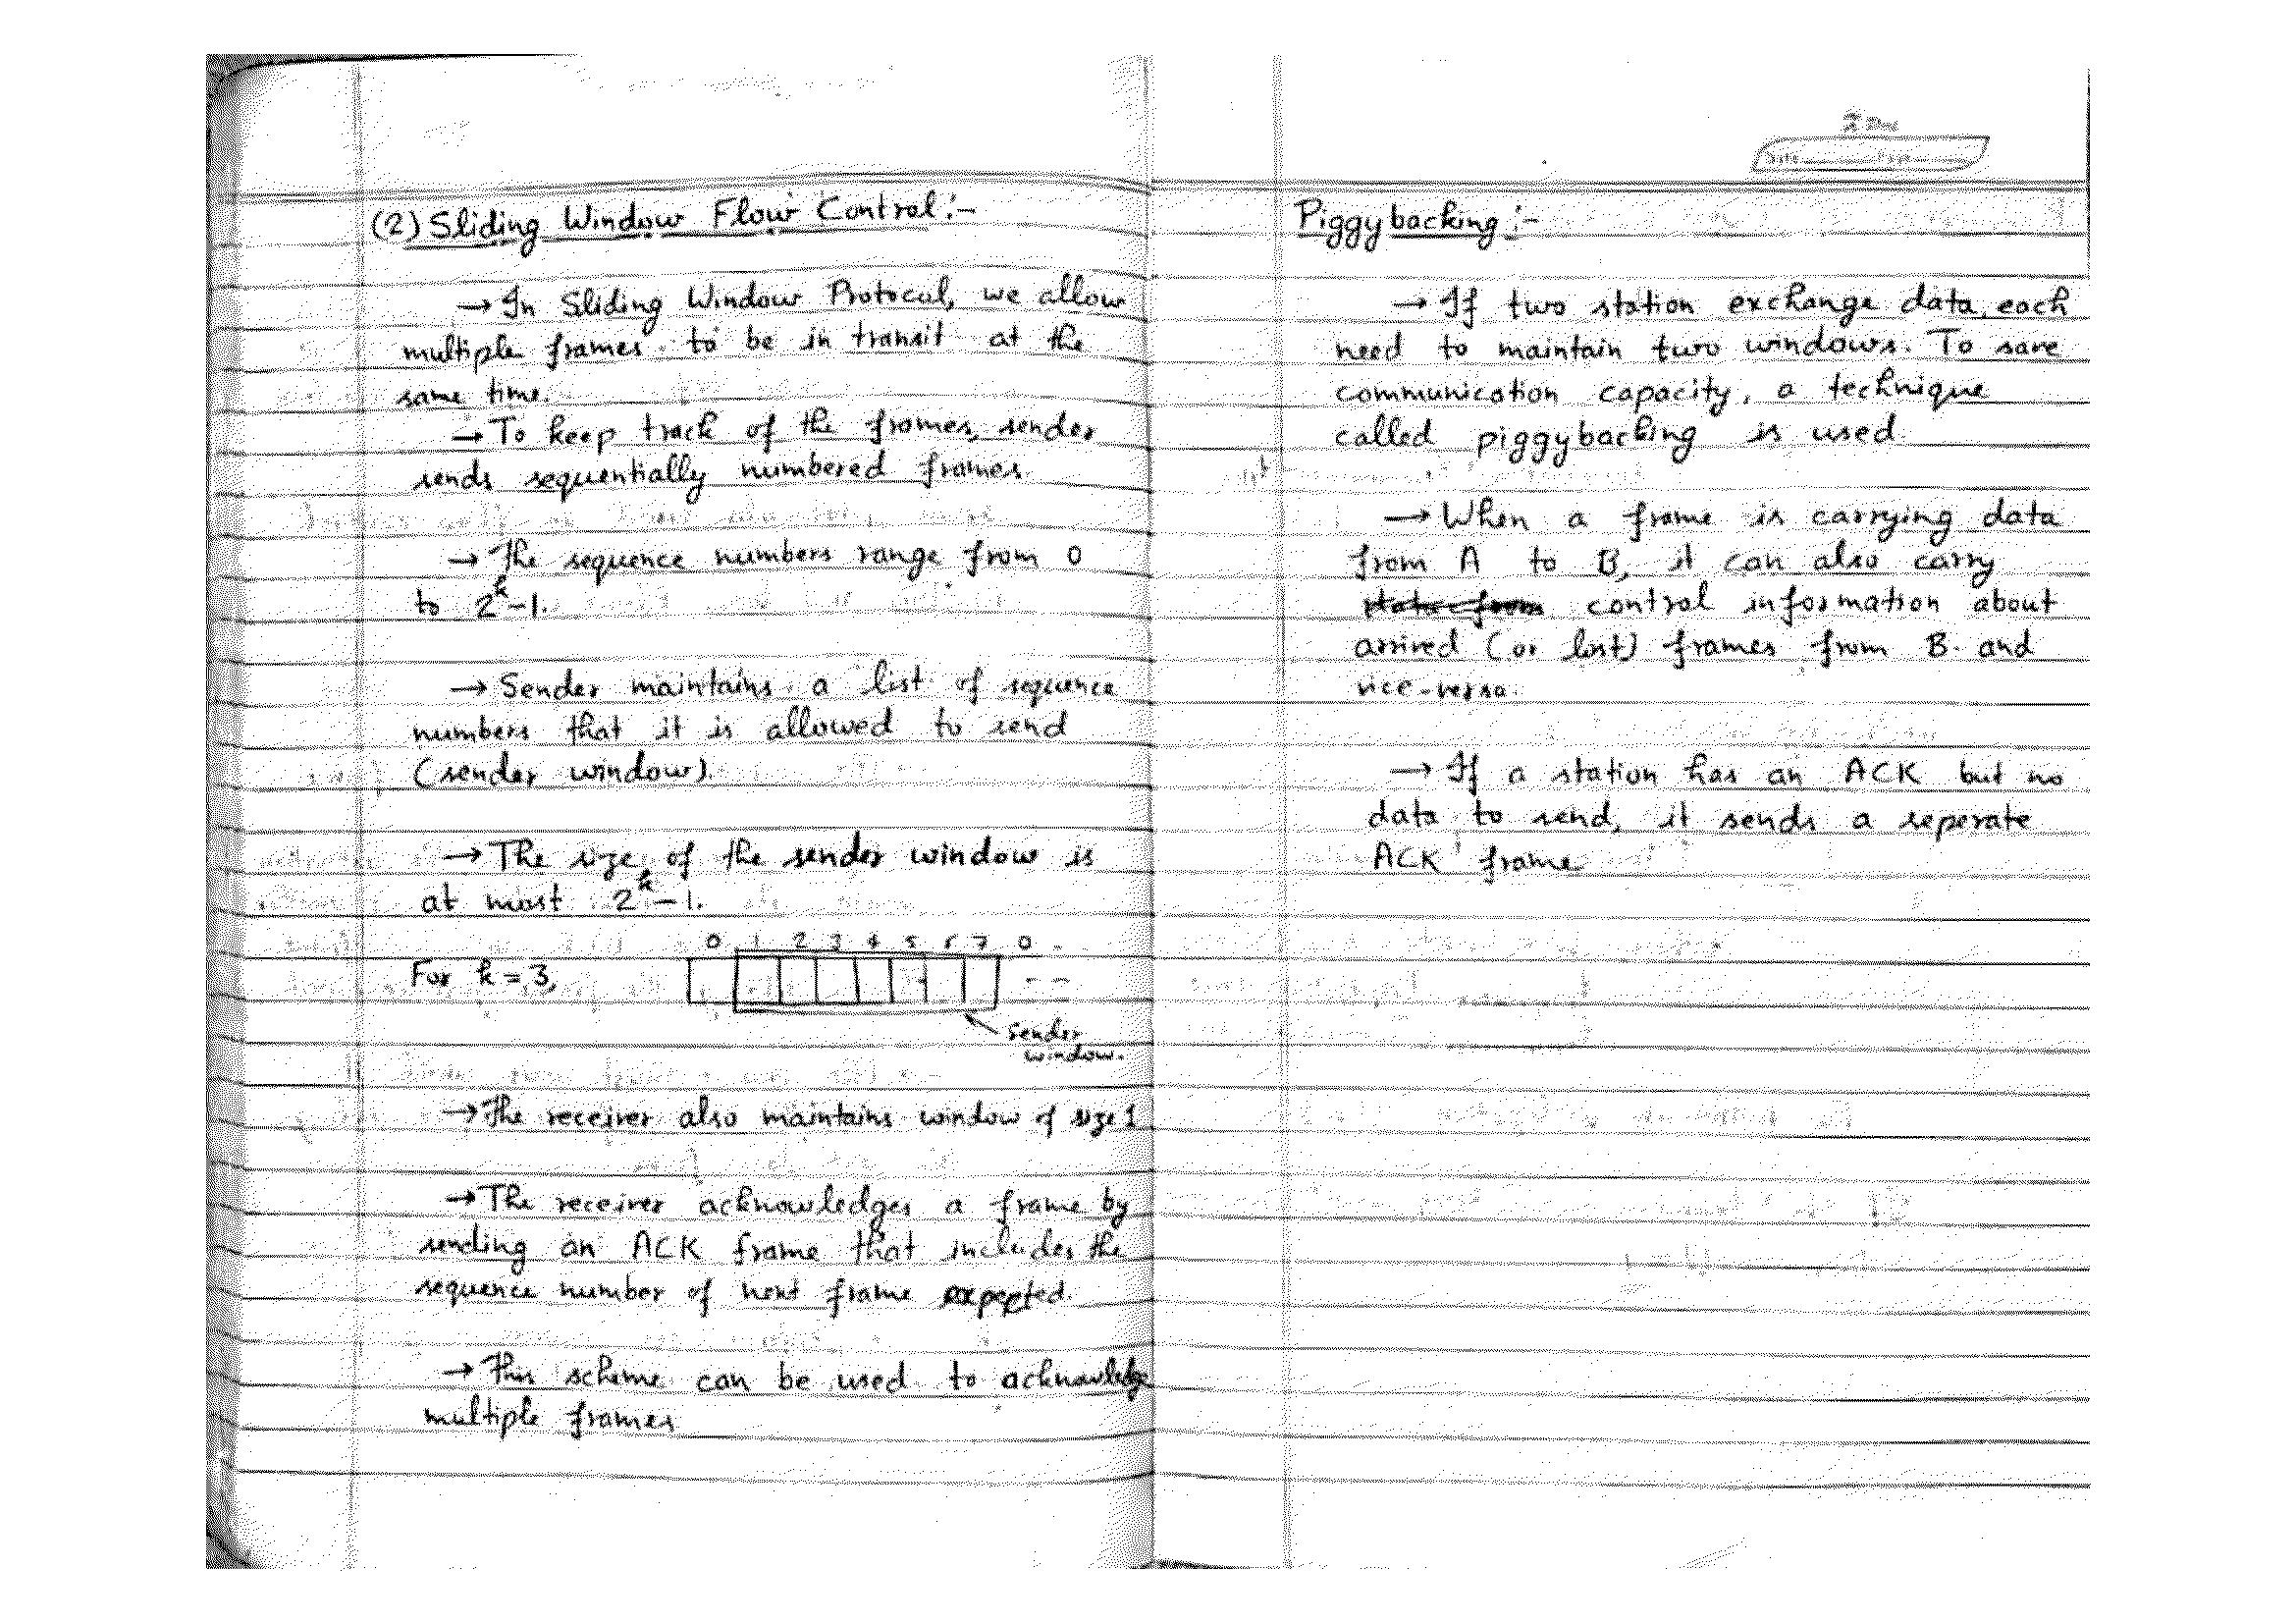 (2) Sliding Window Flow Control :-
→ In Sliding Window Protocol, we allow
multiple frames to be in transit at the
same time.
→ To keep track of the frames, sender
sends sequentially numbered frames.
→ The sequence numbers range from 0
to 2^k-1.
→ Sender maintains a list of sequence
numbers that it is allowed to send
(sender window).
→ The size of the sender window is
at most 2^k-1.
0 1 2 3 4 5 6 7 0 -
For k = 3, - -
sender
window.
→ The receiver also maintains window of size 1
→ The receiver acknowledges a frame by
sending an ACK frame that includes the
sequence number of next frame expected.
→ This scheme can be used to acknowledge
multiple frames
Piggybacking :-
→ If two station exchange data, each
need to maintain two windows. To save
communication capacity, a technique
called piggybacking is used.
→ When a frame is carrying data
from A to B, it can also carry
control information about
arrived (or lost) frames from B and
vice-versa.
→ If a station has an ACK but no
data to send, it sends a seperate
ACK frame